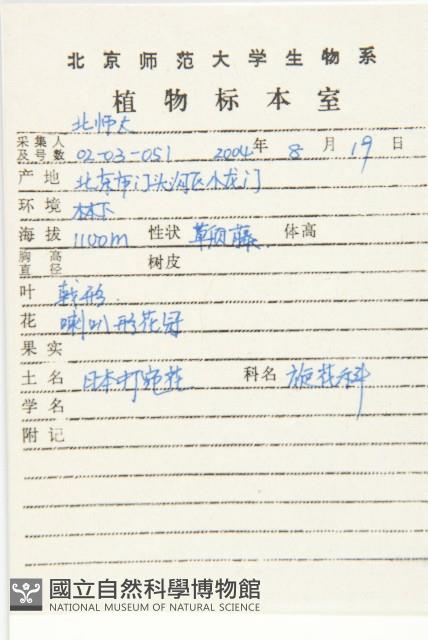 北京师范大学生物系
植物标本室
北师大
采集人及号数 02-03-051 2004年 8月 19日
产地 北京市门头沟区小龙门
环境 林下
海拔 1100m 性状 草质藤 体高
胸高直径 树皮
叶 戟形
花 喇叭形花冠
果实
土名 日本打碗花 科名 旋花科
学名
附记
國立自然科學博物館
NATIONAL MUSEUM OF NATURAL SCIENCE